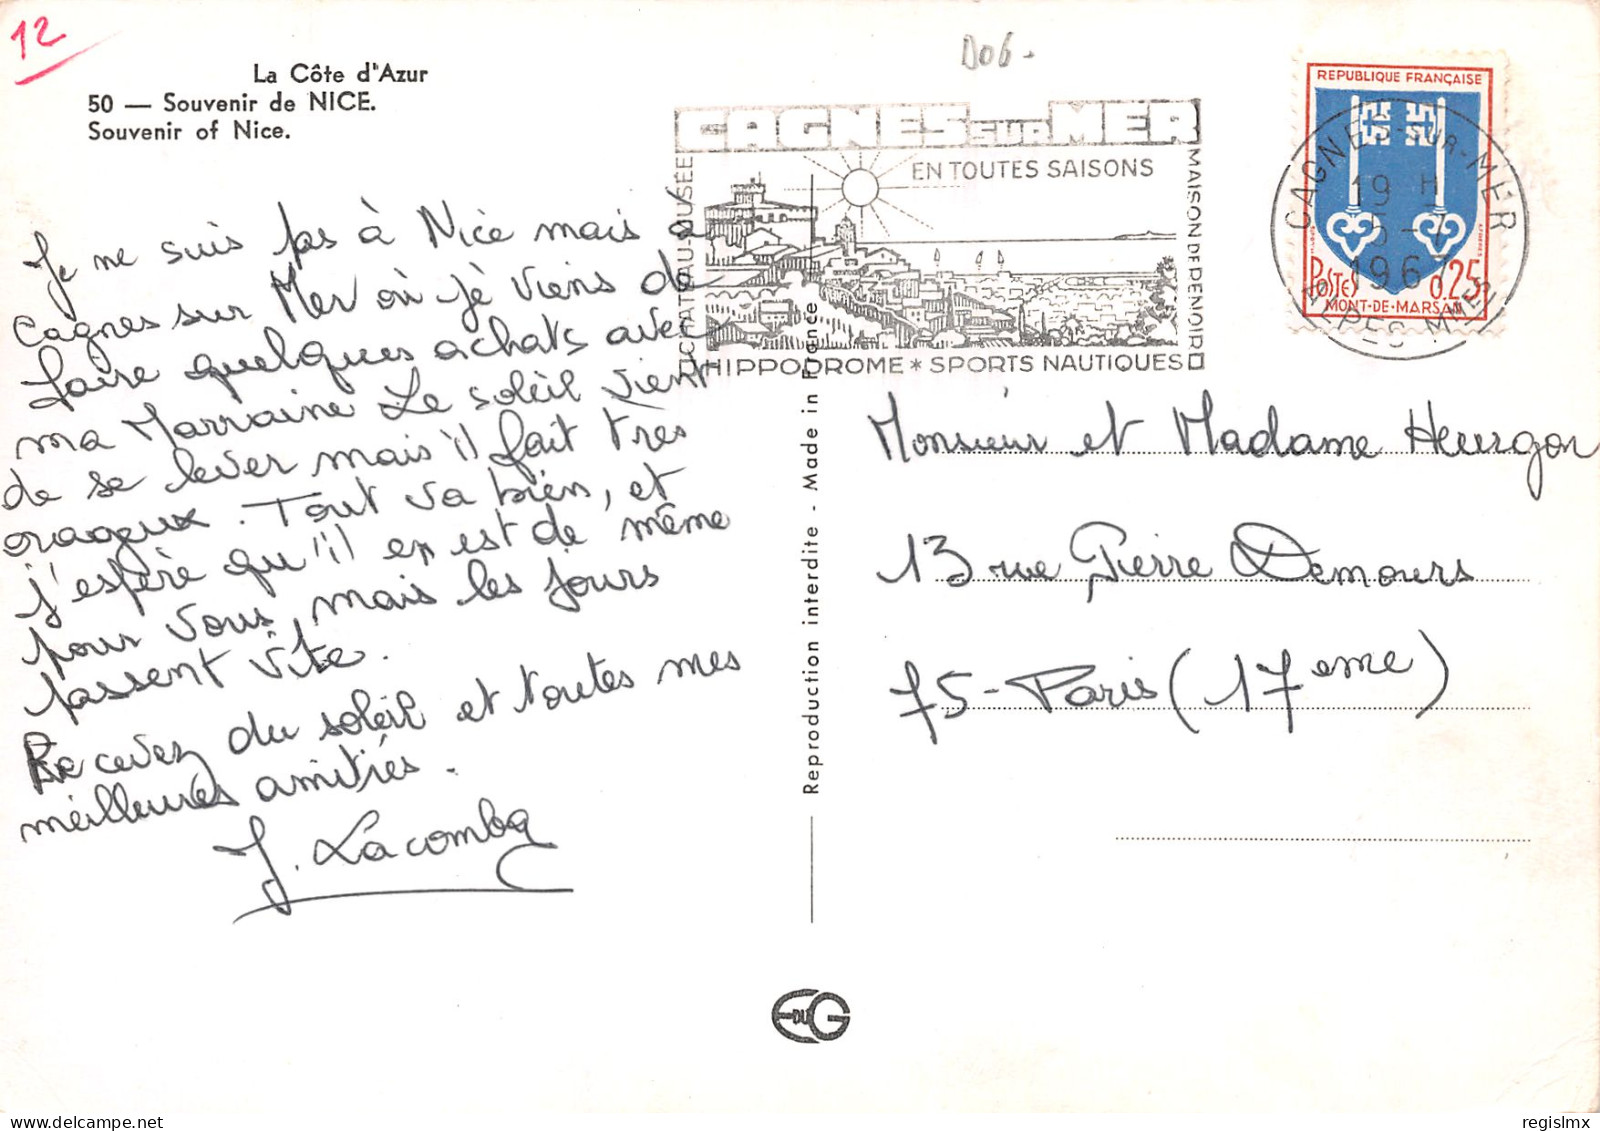 12
La Côte d'Azur
50 — Souvenir de NICE.
Souvenir of Nice.
D06-
Je ne suis pas à Nice mais à
Cagnes sur Mer où je viens de
faire quelques achats avec
ma Marraine Le soleil vient
de se lever mais il fait très
orageux. Tout va bien, et
j'espère qu'il en est de même
pour vous, mais les jours
passent vite.
Recevez du soleil et toutes mes
meilleures amitiés.
J. Lacombe
CAGNES SUR MER
EN TOUTES SAISONS
CHATEAU-MUSÉE
MAISON DE RENOIR
HIPPODROME * SPORTS NAUTIQUES
REPUBLIQUE FRANÇAISE
POSTES 0,25
MONT-DE-MARSAN
CAGNES-SUR-MER
19 H
196
ALPES MMES
Reproduction interdite - Made in France
Monsieur et Madame Heurgon
13 rue Pierre Demours
75-Paris (17eme)
E DU G
regislmx
delcampe.net